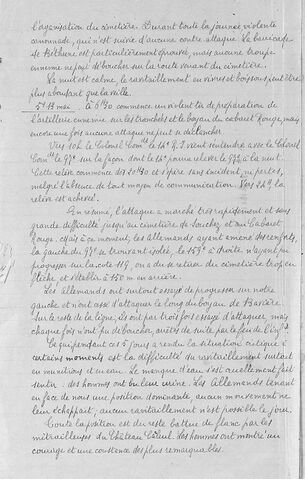 l'organisation du cimetière. Durant toute la journée violente
canonnade, qui n'est suivie d'aucune contre attaque. La barricade
de Béthune est particulièrement éprouvée, mais aucune troupe
ennemie ne peut déboucher sur la route venant du cimetière.
La nuit est calme, le ravitaillement en vivres et boissons, put être
plus abondant que la veille.
5h 13 mai. à 5h30 commence un violent tir de préparation de
l'artillerie ennemie sur les tranchées et le boyau du cabaret Rouge, mais
encore une fois aucune attaque ne peut se déclencher.
Vers 10h le Colonel Comdt le 14e R.I. vient s'entendre avec le Colonel
Comdt le 97e sur la façon dont le 14e pourra relever le 97e à la nuit.
Cette relève commence dès 20h30 et s'opère sans incident ni pertes,
malgré l'absence de tout moyen de communication. Vers 24h la
relève est achevée.
En résumé, l'attaque a marché très rapidement et sans
grande difficulté jusqu'au cimetière de Souchez et au Cabaret
Rouge. Mais à ce moment, les Allemands ayant amené des renforts,
la gauche du 97e se trouvant isolée, le 159e à droite n'ayant pu
progresser sur la cote 119, on a dû se retirer du cimetière trop en
flèche et s'établir à 150 m en arrière.
Les allemands ont surtout essayé de progresser sur notre
gauche et nous ont d'attaquer le long du boyau de
Sur le reste de la ligne, ils ont par trois fois essayé d'attaquer, mais
chaque fois n'ont pu déboucher, arrêtés de suite par le feu de l'infie.
Ce qui pendant ces 5 jours a rendu la situation critique à
certains moments est la difficulté du ravitaillement surtout
en munitions et en eau. Le manque d'eau s'est cruellement fait
sentir : des hommes ont bu leur urine. Les Allemands tenant
en face de nous une position dominante, aucun mouvement ne
leur échappait, aucun ravitaillement n'est possible le jour.
Toute la position est du reste battue de flanc par les
mitrailleuses du Château Carleul. Les hommes ont montré un
courage et une constance des plus remarquables.